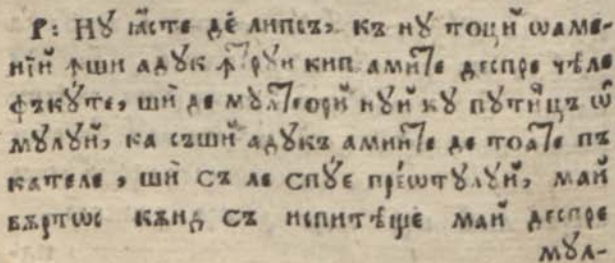 Р: Нꙋ ꙗ҆сте де́ липсъ, къ нꙋ тоци́ ѡаме-
нїй ꙟши адꙋк ꙟтрꙋн кип аминте деспре чѣле
фъкꙋте, шѝ де мꙋлтеорѝ нꙋй кꙋ пꙋтинцъ ѡ҆
мꙋлꙋй, ка съшѝ адꙋкъ аминте де тоате пъ
кателе, шѝ съ ле спꙋ́е прео́тꙋлꙋй, май
вѫртос кѫнд съ испитѣще май деспре
мꙋл-